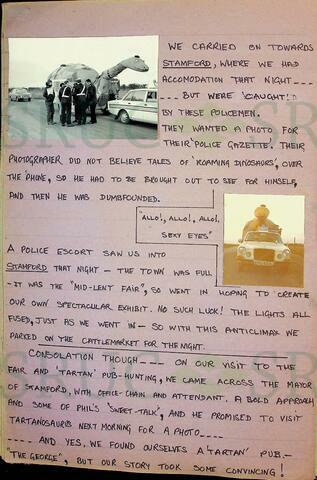 WE CARRIED ON TOWARDS
STAMFORD, WHERE WE HAD
ACCOMODATION THAT NIGHT----
---- BUT WERE 'CAUGHT'!
BY THESE POLICEMEN.
THEY WANTED A PHOTO FOR
THEIR 'POLICE GAZETTE'! THEIR
PHOTOGRAPHER DID NOT BELIEVE TALES OF 'ROAMING DINOSAURS', OVER
THE PHONE, SO HE HAD TO BE BROUGHT OUT TO SEE FOR HIMSELF,
AND THEN HE WAS DUMBFOUNDED.
"ALLO!, ALLO!, ALLO!,
SEXY EYES"
A POLICE ESCORT SAW US INTO
STAMFORD THAT NIGHT - THE TOWN WAS FULL
- IT WAS THE "MID-LENT FAIR", SO WENT IN HOPING TO CREATE
OUR OWN SPECTACULAR EXHIBIT. NO SUCH LUCK! THE LIGHTS ALL
FUSED, JUST AS WE WENT IN - SO WITH THIS ANTICLIMAX WE
PARKED ON THE CATTLEMARKET FOR THE NIGHT.
CONSOLATION THOUGH---- ON OUR VISIT TO THE
FAIR AND 'TARTAN' PUB-HUNTING, WE CAME ACROSS THE MAYOR
OF STAMFORD, WITH OFFICE-CHAIN AND ATTENDANT. A BOLD APPROACH
AND SOME OF PHIL'S 'SWEET-TALK', AND HE PROMISED TO VISIT
TARTANOSAURUS NEXT MORNING FOR A PHOTO----
---- AND YES, WE FOUND OURSELVES A 'TARTAN' PUB.-
"THE GEORGE", BUT OUR STORY TOOK SOME CONVINCING!